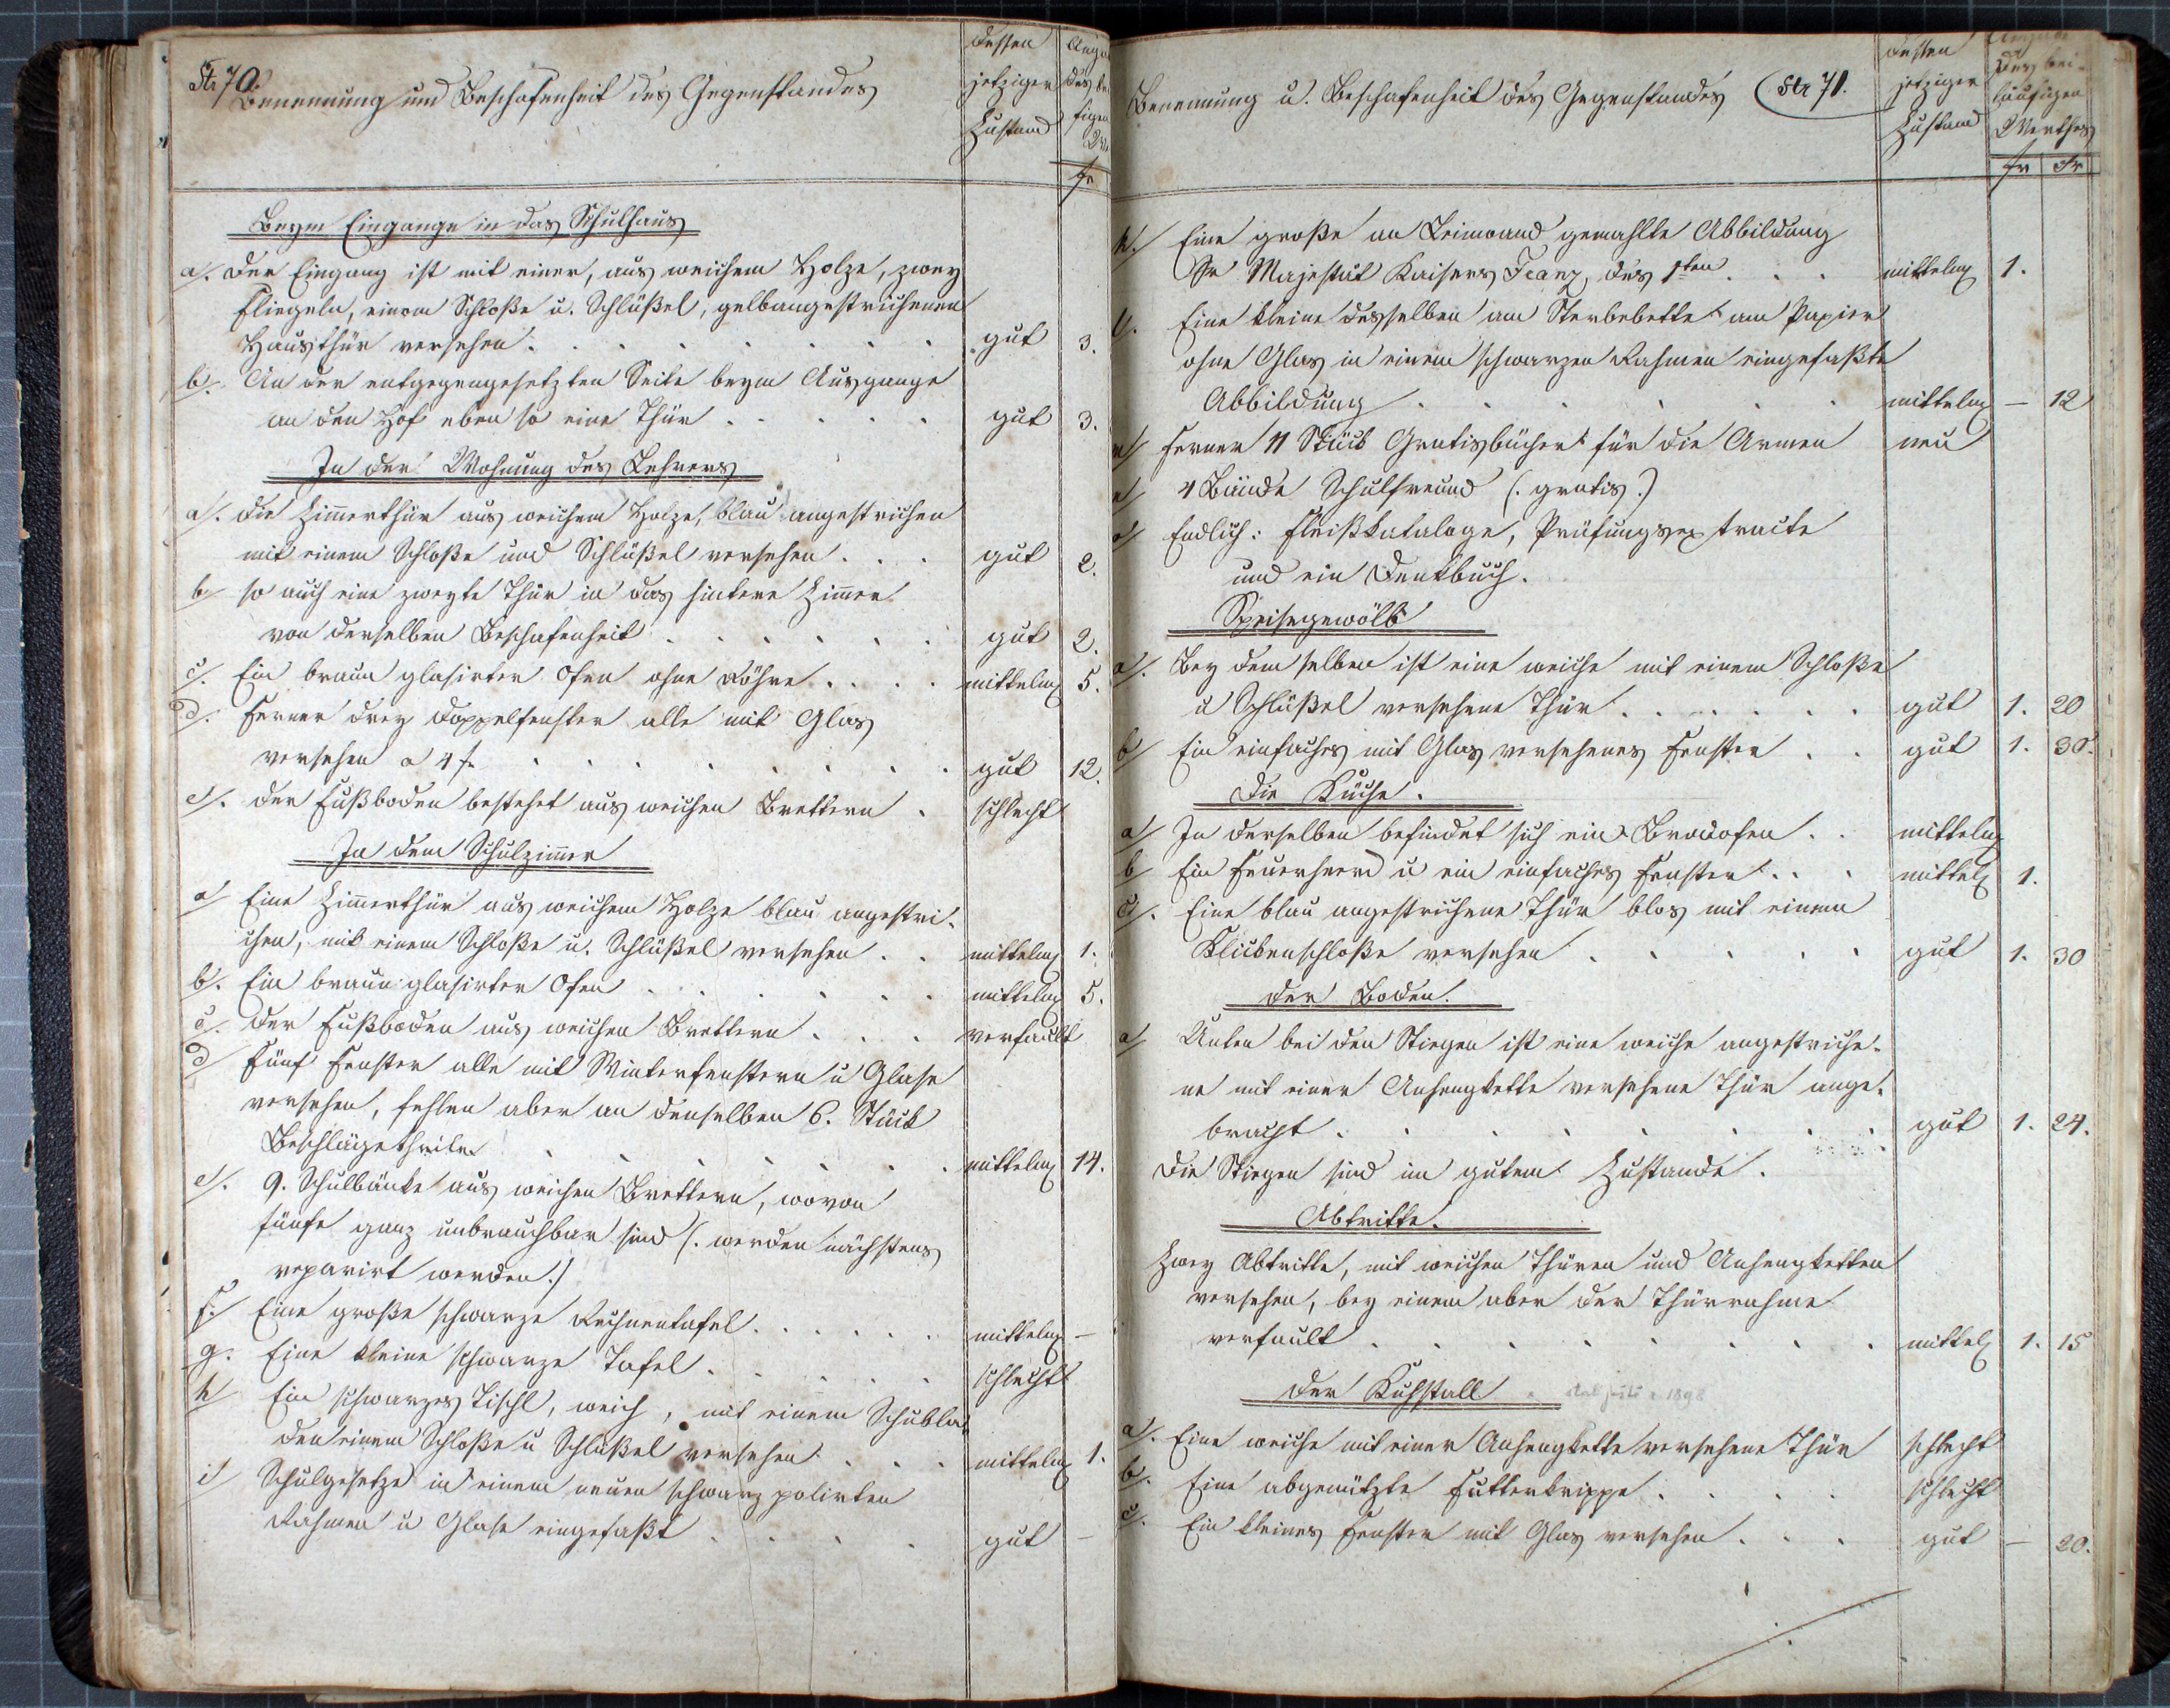 Str 70.
Benennung und Beschafenheit des Gegenstandes
dessen
jetziger
Zustand
fr
Beym Eingange in das Schulhaus
a/. Der Eingang ist mit einer, aus weichem Holze, zwey
Fliegeln, einem Schloße u. Schlüßel, gelbangestrichenen
Hausthür versehen . . . . . . gut 3.
b/. An der entgegengesetzten Seite beym Ausgange
an den Hof eben so eine Thür . . . . . gut 3.
In der Wohnung des Lehrers
a/. Die Zimerthür aus weichem Holze, blau angestrichen
mit einem Schloße und Schlüßel versehen . . . gut 2.
b/ so auch eine zweyte Thür in das hintere Zimer
von derselben Beschafenheit . . . . . . gut 2.
c/. Ein braun glasirter Ofen ohne Röhre . . . . mittelm 5.
d/. Ferner drey Doppelfenster alle mit Glas
versehen a 4 f. . . . . . . . gut 12.
e/. Der Fußboden bestehet aus weichen Brettern . schlecht
In dem Schulzimer
a/ Eine Zimerthür aus weichem Holze blau angestri-
chen, mit einem Schloße u. Schlüßel versehen . . mittelm 1.
b/. Ein braun glasirter Ofen . . . . . . mittelm 5.
c/. Der Fußboden aus weichen Brettern . . . verfault
d/ Fünf Fenster alle mit Winterfenstern u Glase
versehen, fehlen aber an denselben 6. Stück
Beschlägetheile . . . . . . mittelm 14.
e/. 9. Schulbänke aus weichen Brettern, wovon
fünfe ganz unbrauchbar sind (. werden nächstens
reparirt werden./
f./ Eine große schwarze Rechnentafel . . . . . . mittelm –
g. Eine kleine schwarze Tafel . . . . . schlecht
h/ Ein schwarzes Tischl, weich, mit einem Schubla-
den einem Schloße u Schlüßel versehen . . . mittelm 1.
i/ Schulgesetze in einem neuen schwarz polirten
Rahmen u Glase eingefaßt . . . . gut –
Benennung u. Beschafenheit des Gegenstandes Str 71.
dessen
jetziger
Zustand
Angabe
des bei-
läufigen
Werthes
fr Xr
k/. Eine große an Leinwand gemahlte Abbildung
Sr Majestät Kaisers Franz, des 1ten . . . mittelm 1.
l/. Eine kleine desselben am Sterbebette am Papier
ohne Glas in einem schwarzen Rahmen eingefaßte
Abbildung . . . . . . mittelm – 12
m/ Ferner 11 Stück Gratisbücher für die Armen neu
n/ 4 Bände Schulfreund (. gratis .)
o/ Endlich: Fleißkataloge, Prüfungsextracte
und ein Denkbuch.
Speisegewölb
a/. Bey dem selben ist eine weiche mit einem Schloße
u Schlüßel versehene Thür . . . . . . gut 1. 20
b/ Ein einfaches mit Glas versehenes Fenster . . gut 1. 30.
Die Küche.
a/ In derselben befindet sich ein Bradofen . . mittelm
b/ Ein Feuerheerd u ein einfaches Fenster . . . mittelm 1.
c/. Eine blau angestrichene Thür blos mit einem
Klickenschloße versehen . . . . . gut 1. 30
Der Boden.
a/ Unten bei den Stiegen ist eine weiche angestriche-
ne mit einer Anhengkette versehene Thür ange-
bracht . . . . . . gut 1. 24.
Die Stiegen sind im gutem Zustande.
Abtritte.
Zwey Abtritte, mit weichen Thüren und Anhengketten
versehen, bey einem aber der Thürrahme
verfault . . . . . . . . mittelm 1. 15
Der Kuhstall
1898
a/. Eine weiche mit einer Anhengkette versehene Thür schlecht
b/. Eine abgenützte Futterkrippe . . . . schlecht
c/. Ein kleines Fenster mit Glas versehen . . . gut – 20.